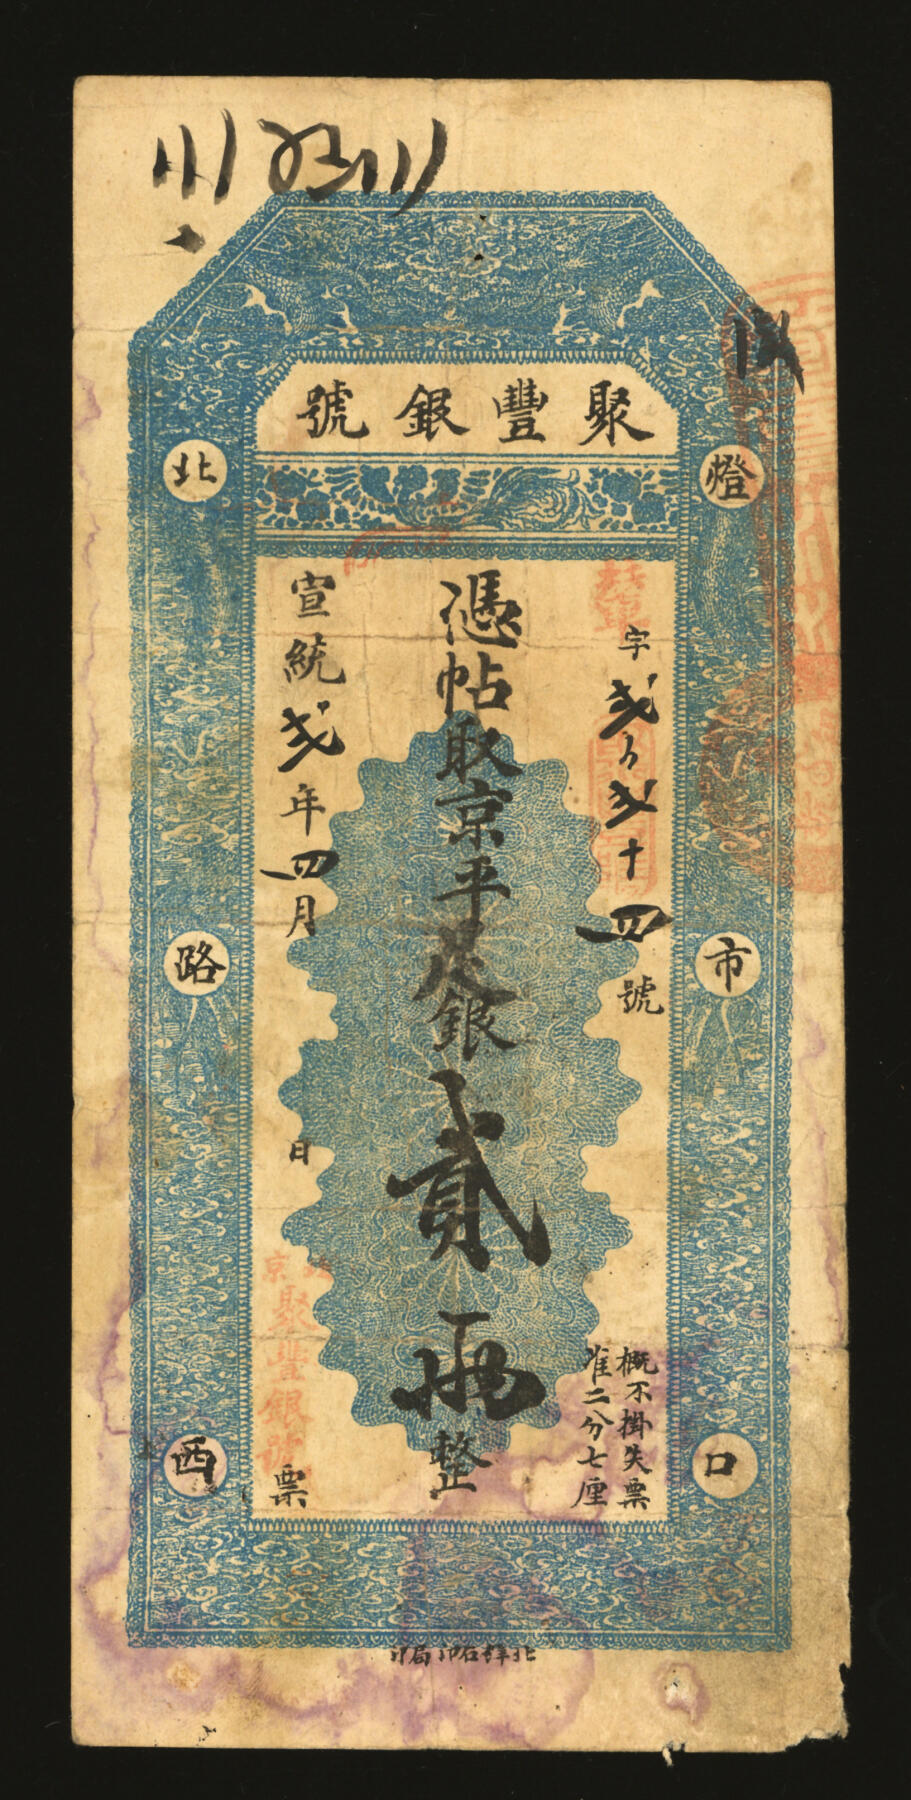 聚豐銀號
燈市口
北路西
字貳百貳十四號
概不掛失票
准二分七厘
憑帖取京平足銀貳兩整
宣統貳年四月 日
京
聚豐銀號
票